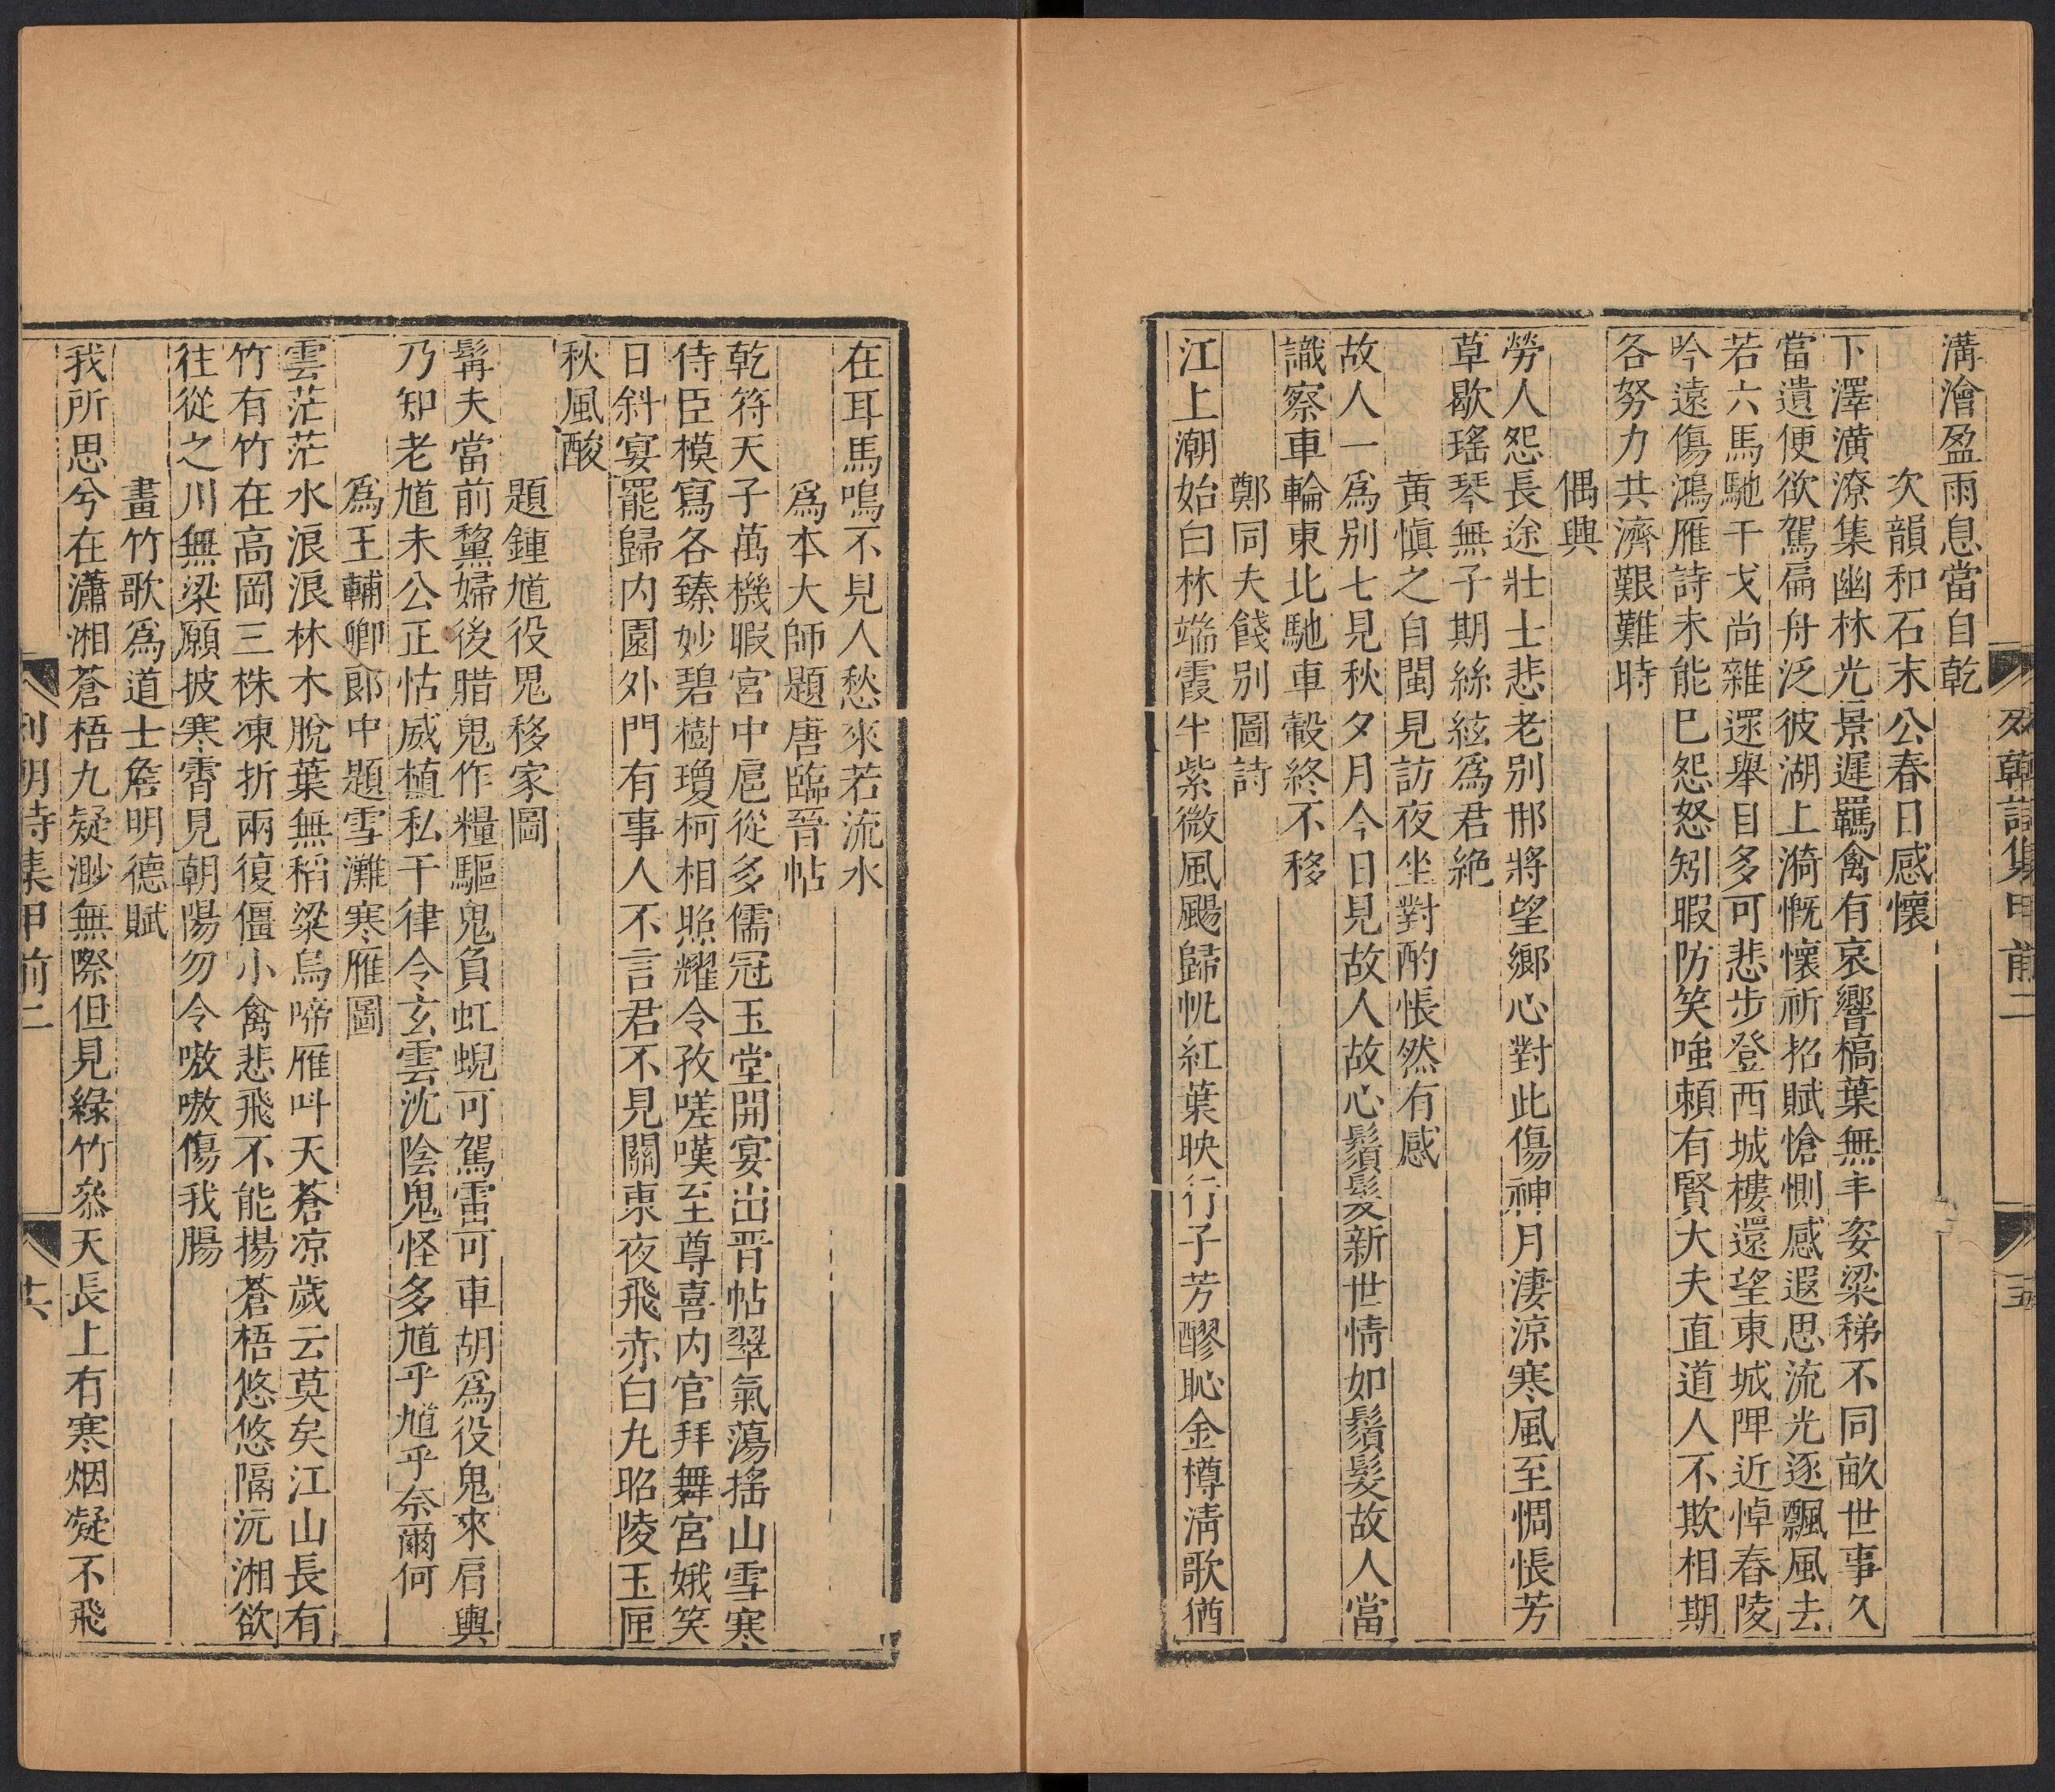 溝澮盈雨息當自乾
次韻和石末公春日感懷
下澤潢潦集幽林光景遲羈禽有哀響槁葉無丰姿粱稊不同畝世事久
當遺便欲駕扁舟泛彼湖上漪慨懷祈招賦愴惻感遐思流光逐飄風去
若六馬馳干戈尚雜遝舉目多可悲步登西城樓還望東城陴近悼舂陵
吟遠傷鴻雁詩未能已怨怒矧暇防笑嗤賴有賢大夫直道人不欺相期
各努力共濟艱難時
偶興
勞人怨長途壯士悲老別邢將望鄉心對此傷神月淒涼寒風至惆悵芳
草歇瑤琴無子期絲絃爲君絶
黄愼之自閩見訪夜坐對酌悵然有感
故人一爲別七見秋夕月今日見故人故心鬚髮新世情如鬚髮故人當
識察車輪東北馳車轂終不移
鄭同夫餞別圖詩
江上潮始白林端霞半紫微風颺歸帆紅葉映行子芳醪恥金樽淸歌猶
在耳馬鳴不見人愁來若流水
爲本大師題唐臨晉帖
乾符天子萬機暇宮中扈從多儒冠玉堂開宴出晉帖翠氣蕩搖山雪寒
侍臣模寫各臻妙碧樹瓊柯相照耀令孜嗟嘆至尊喜内官拜舞宮娥笑
日斜宴罷歸内園外門有事人不言君不見關東夜飛赤白丸昭陵玉匣
秋風酸
題鍾馗役鬼移家圖
髯夫當前黧婦後腊鬼作糧驅鬼負虹蜺可駕雷可車胡爲役鬼來肩輿
乃知老馗未公正怙威植私干律令玄雲沈陰鬼怪多馗乎馗乎奈爾何
爲王輔卿郎中題雪灘寒雁圖
雲茫茫水浪浪林木脫葉無稻粱烏啼雁叫天蒼凉歲云莫矣江山長有
竹有竹在高岡三株凍折兩復僵小禽悲飛不能揚蒼梧悠悠隔沅湘欲
往從之川無梁願披寒霄見朝陽勿令嗷嗷傷我腸
畫竹歌爲道士詹明德賦
我所思兮在瀟湘蒼梧九疑渺無際但見綠竹叅天長上有寒烟凝不飛
列朝詩集甲前二